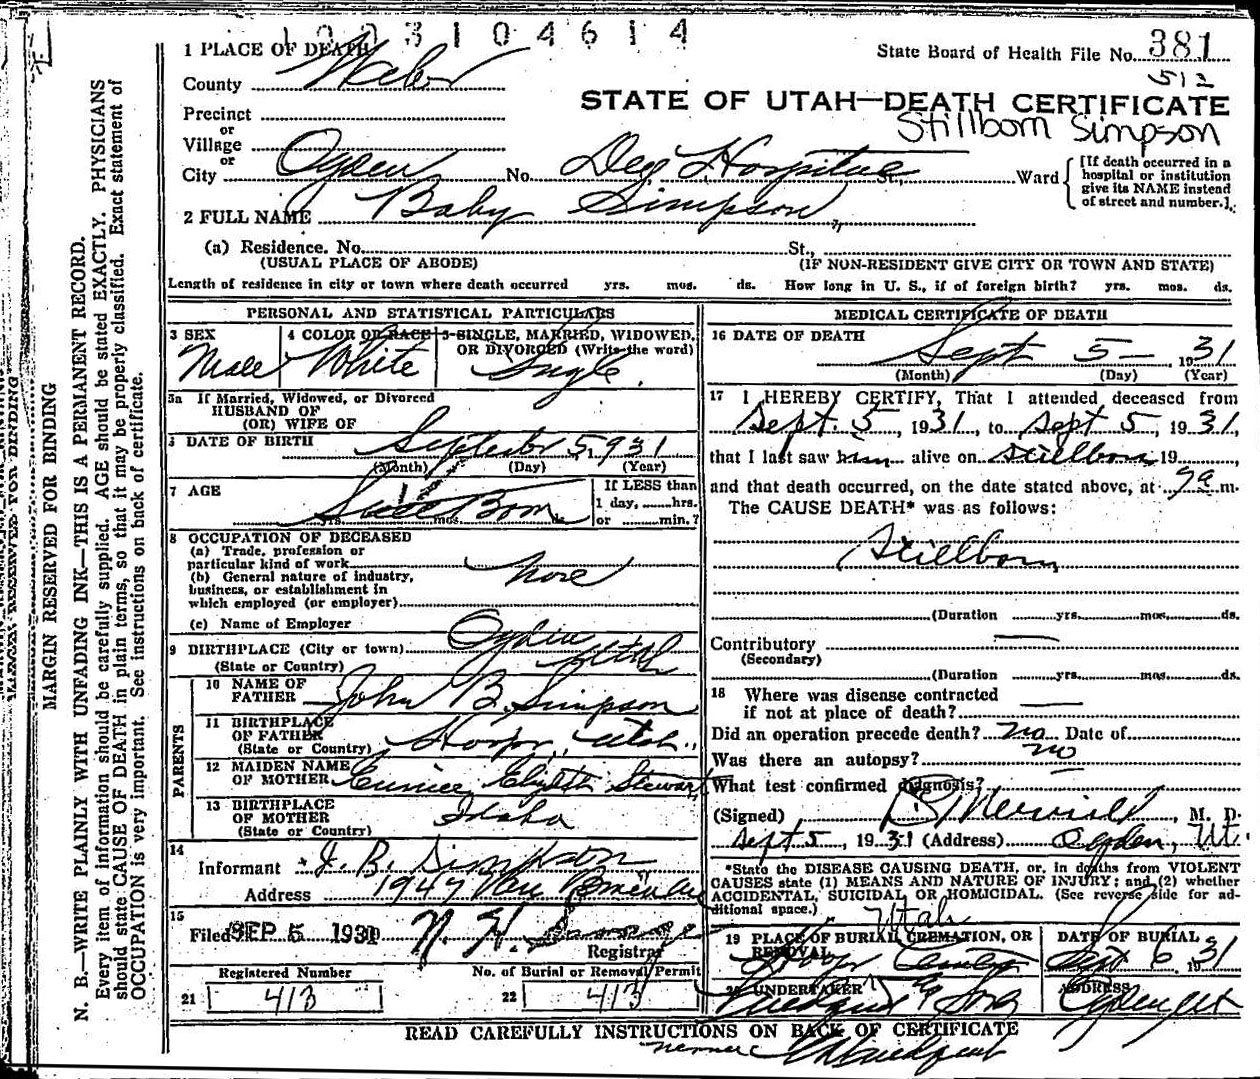 1003104614
1 PLACE OF DEATH
State Board of Health File No. 381
512
County Weber
STATE OF UTAH—DEATH CERTIFICATE
Stillborn Simpson
Precinct
or
Village
or
City Ogden No. Dee Hospital St., Ward
[If death occurred in a
hospital or institution
give its NAME instead
of street and number.]
2 FULL NAME Baby Simpson
(a) Residence. No. St.,
(USUAL PLACE OF ABODE) (IF NON-RESIDENT GIVE CITY OR TOWN AND STATE)
Length of residence in city or town where death occurred yrs. mos. ds. How long in U. S., if of foreign birth? yrs. mos. ds.
PERSONAL AND STATISTICAL PARTICULARS
3 SEX Male
4 COLOR OR RACE White
5 SINGLE, MARRIED, WIDOWED,
OR DIVORCED (Write the word)
Single.
5a If Married, Widowed, or Divorced
HUSBAND OF
(OR) WIFE OF
DATE OF BIRTH September 5, 1931
(Month) (Day) (Year)
7 AGE Still Born
yrs. mos. ds.
If LESS than
1 day, hrs.
or min.?
8 OCCUPATION OF DECEASED
(a) Trade, profession or
particular kind of work none
(b) General nature of industry,
business, or establishment in
which employed (or employer)
(c) Name of Employer
9 BIRTHPLACE (City or town) Ogden
(State or Country) Utah
PARENTS
10 NAME OF
FATHER John B. Simpson
11 BIRTHPLACE
OF FATHER Hooper, Utah
(State or Country)
12 MAIDEN NAME
OF MOTHER Eunice Stewart
13 BIRTHPLACE
OF MOTHER Idaho
(State or Country)
14
Informant J. B. Simpson
Address 1947
15
Filed SEP 5 1931 N. H.
Registrar
Registered Number
21 413
No. of Burial or Removal Permit
22 413
MEDICAL CERTIFICATE OF DEATH
16 DATE OF DEATH
Sept 5 — 1931
(Month) (Day) (Year)
17 I HEREBY CERTIFY, That I attended deceased from
Sept. 5, 1931, to Sept 5, 1931,
that I last saw him alive on stillborn 19
and that death occurred, on the date stated above, at 9a m.
The CAUSE DEATH* was as follows:
Stillborn
(Duration yrs. mos. ds.
Contributory
(Secondary)
(Duration yrs. mos. ds.
18 Where was disease contracted
if not at place of death?
Did an operation precede death? no Date of
Was there an autopsy? no
What test confirmed diagnosis?
(Signed) M. D.
Sept 5, 1931 (Address) Ogden, Ut.
*State the DISEASE CAUSING DEATH, or, in deaths from VIOLENT
CAUSES state (1) MEANS AND NATURE OF INJURY; and (2) whether
ACCIDENTAL, SUICIDAL OR HOMICIDAL. (See reverse side for ad-
ditional space.)
Utah
19 PLACE OF BURIAL, CREMATION, OR
REMOVAL
Hooper Cemetery
DATE OF BURIAL
Sept 6 1931
20 UNDERTAKER
Lindquist & Sons
ADDRESS
Ogden Ut
READ CAREFULLY INSTRUCTIONS ON BACK OF CERTIFICATE
MARGIN RESERVED FOR BINDING
N. B.—WRITE PLAINLY WITH UNFADING INK—THIS IS A PERMANENT RECORD.
Every item of information should be carefully supplied. AGE should be stated EXACTLY. PHYSICIANS
should state CAUSE OF DEATH in plain terms, so that it may be properly classified. Exact statement of
OCCUPATION is very important. See instructions on back of certificate.